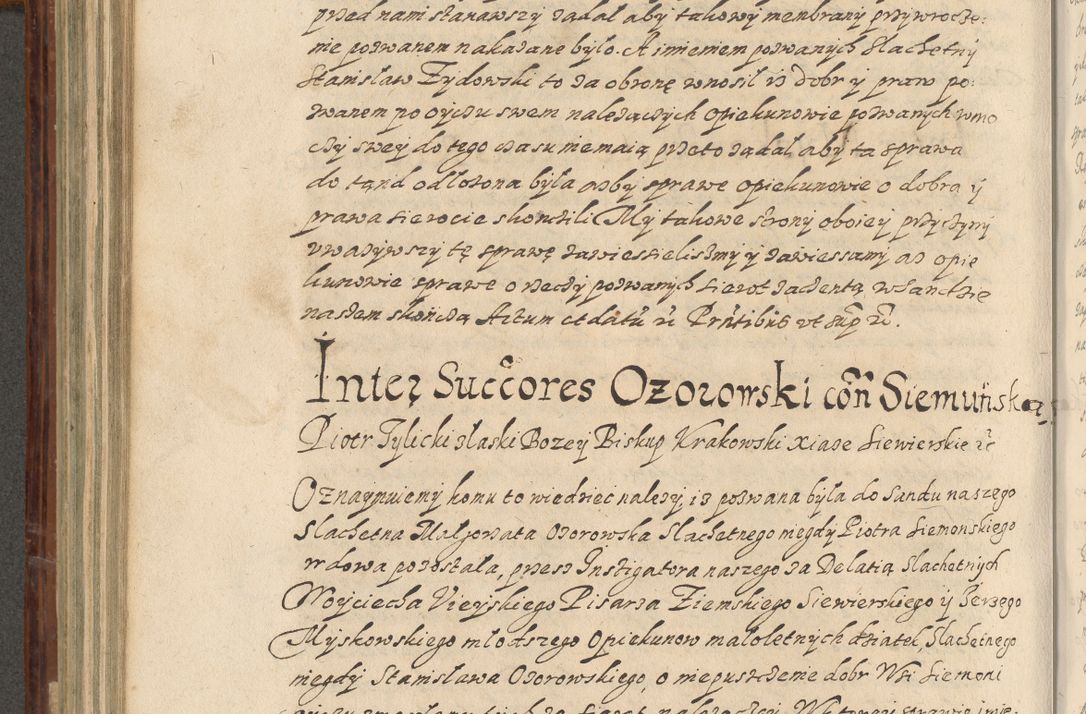 przed nami stanawszy żądał aby takowy membrany przywrocze:
nie pozwanem nakazane było. A imieniem pozwanych Slachetny
Stanisław Żydowski to za obronę wnosił iż dobr y praw po:
zwanem po oyczu swem należących opiekunowie pozwanych w mo
czy swey do tego czasu nie maią przeto żądał aby ta sprawa
do tąnd odłożona była ażby sprawe opiekunowie o dobra ÿ
prawa sierocie skończili My takowe strony oboiey przyczyny
uważywszy tę sprawę zawiesieliszmy y zawiessamy aż opie
kunowie sprawe o rzeczy pozwanych sierot zaczentą w Sandzie
naszem skończą Actum et datũ ut Prñtibus vt sup̃ ut.
Inter Succ̃ores Ozorowski cõñ Siemuńską
Piotr Tylicki z łaski Bozey Biskup Krakowski Xiąże Siewierskie ut
Oznaymuiemy komu to wiedzieć należy, iż pozwana była do Sandu naszego
Slachetna Małgorzata Ozorowska Slachetnego niegdy Piotra Siemonskiego
wdowa pozostała, przez Instigatora naszego za Delatią Slachetnych
Woyciecha Vieyskiego Pisarza Ziemskiego Siewierskiego ÿ Jerzego
Myskowskiego młodszego Opiekunow małoletnych dziatek, Slachetnego
niegdy Stanisława Ozorowskiego, o niepuszczenie dobr Wsi Siemoni